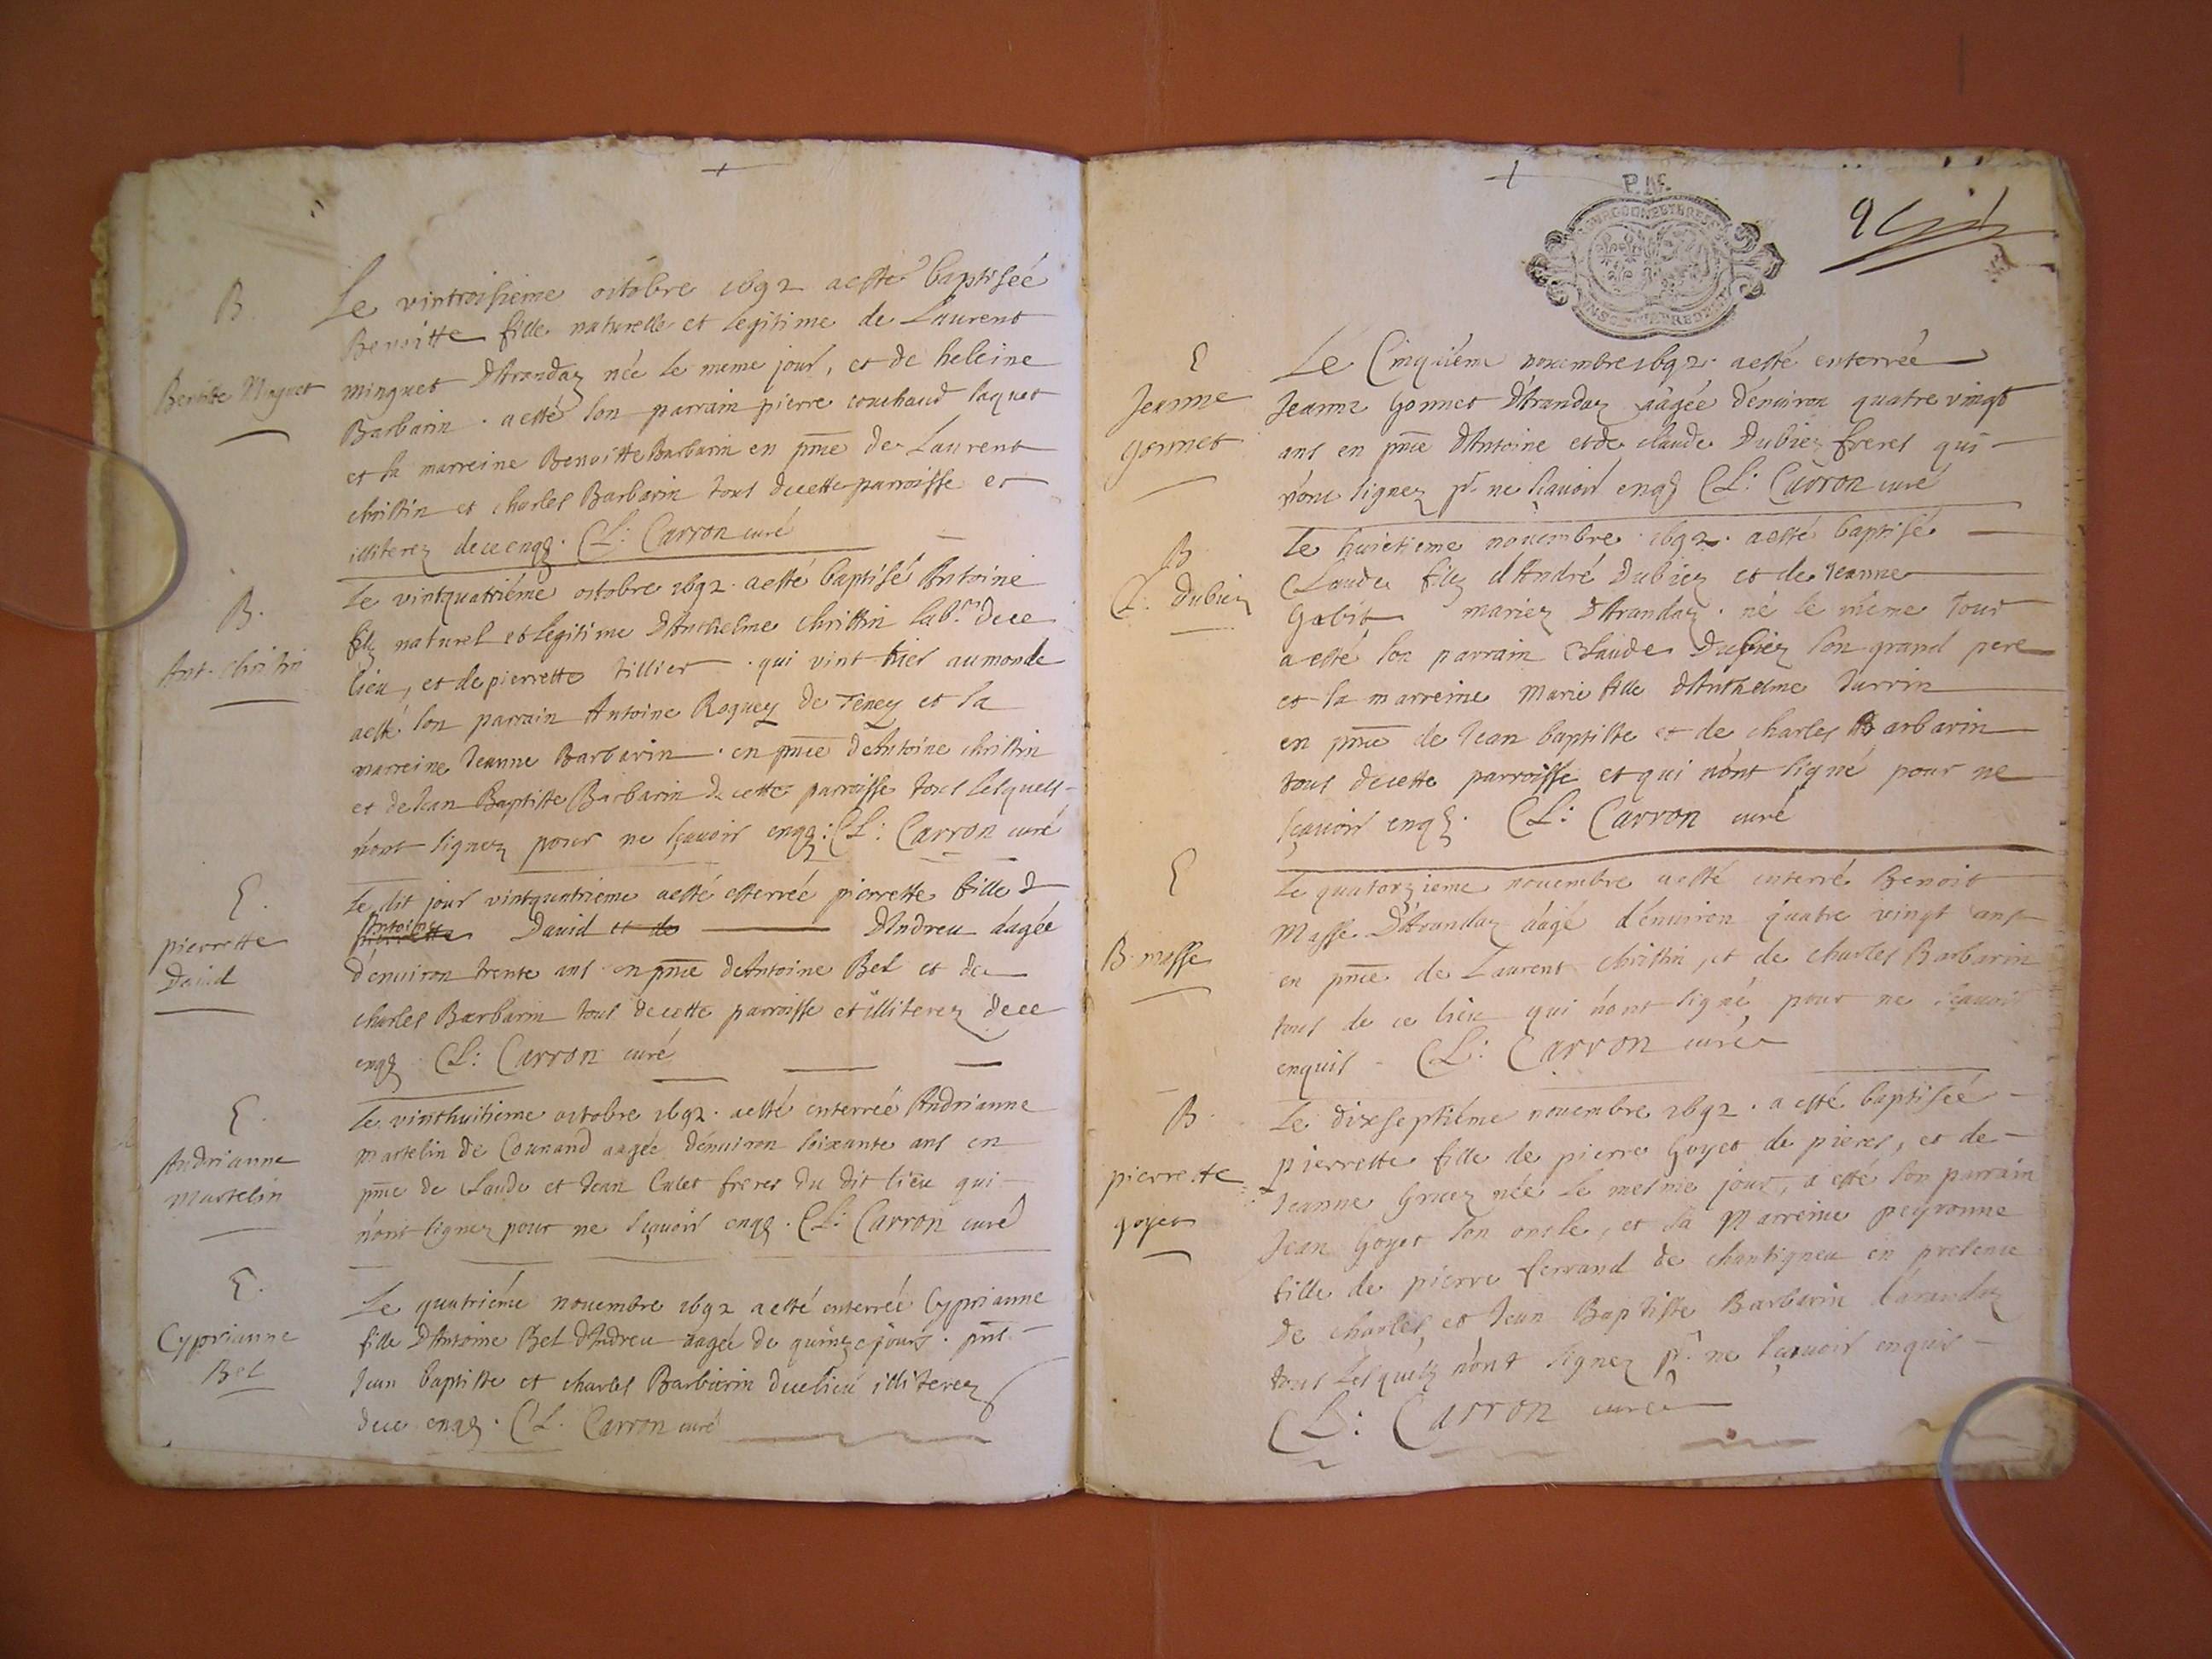 B.
Benoitte Minguet
Le vintroisieme octobre 1692 a esté baptiseé
Benoitte fille naturelle et legitime de Laurent
minguet D'Arandaz née le meme jour, et de heleine
Barbarin . a esté son parrain pierre couchaud Jaquet
et sa marreine Benoitte Barbarin en pnce de Laurent
christin et charles Barbarin tous decette parroisse et
illiterez dece enqs. CL: Carron curé
B.
Ant. christin
Le vintquatriéme octobre 1692. a esté baptisé Antoine
filz naturel et legitime D'Anthelme christin labr. dece
lieu, et de pierrette tillier . qui vint hier au monde
a esté son parrain Antoine Roguey de Teney et sa
marreine Jeanne Barbarin . en pnce deAntoine christin
et de Jean Baptiste Barbarin de cette parroisse tous lesquels
n'ont signez pour ne sçavoir enqs: CL: Carron curé
E.
pierrette
David
Le dit jour vintquatrieme a esté esterreé pierrette fille d
Antoine David et de D'Andreu aagée
d'enuiron trente ans en pnce deAntoine Bel et de
charles Barbarin tous decette parroisse et illiterez dece
enqs CL: Carron curé
E.
Andrianne
Martelin
Le vinthuitieme octobre 1692. a esté enterreé Andrianne
martelin de Counand aagée d'enuiron soixante ans en
pnce de Claude et Jean Culet freres du dit lieu qui
n'ont signez pour ne sçavoir enqs. CL: Carron curé
E.
Cyprianne
Bel
Le quatriéme nouembre 1692 a esté enterreé Cyprianne
fille D'Antoine Bel D'Andreu aagée de quinze jours . pnt.
Jean baptiste et charles Barbarin duelieu illiterez
dece enqs. CL. Carron curé
P.NF.
BOURGOGNE ET BRESSE
E
Jeanne
gonnet
Le Cinquiéme nouembre 1692. a esté enterreé
Jeanne Gonnet D'Arandaz aagée d'enuiron quatre vingt
ans en pnce d'Antoine et de claude Dubiez freres qui
n'ont signez pr. ne sçavoir enqs CL: Carron curé
B
Cl: Dubiez
Le huietieme nouembre 1692. a esté baptisé
Claude filz d'André Dubiez et de Jeanne
Gabit mariez D'Arandaz . né le méme Jour
a esté son parrain Claude Dubiez son grand pere
et sa marreine Marie fille d'Anthelme Jurrin
en pnce de Jean baptiste et de charles Barbarin
tous decette parroisse et qui n'ont signé pour ne
sçavoir enqs. CL: Carron curé
E
B. masse
Le quatorzieme nouembre a esté enterré Benoit
Masse D'Arandaz aagé d'enuiron quatre vingt ans
en pnce de Laurent christin, et de charles Barbarin
tous de ce lieu qui n'ont signé pour ne sçavoir
enquis CL: Carron curé
B.
pierrette
goyet
Le dixseptiéme nouembre 1692 . a esté baptiseé
pierrette fille de pierre Goyet de pieres, et de
Jeanne née le mesme jour, a esté son parrain
Jean Goyet son oncle, et sa Marreine peyronne
fille de pierre ferrand de chantigneu en presence
de charles et Jean Baptiste Barbarin d'arandaz
tous lesquels n'ont signez pr. ne sçavoir enquis
CL: Carron curé